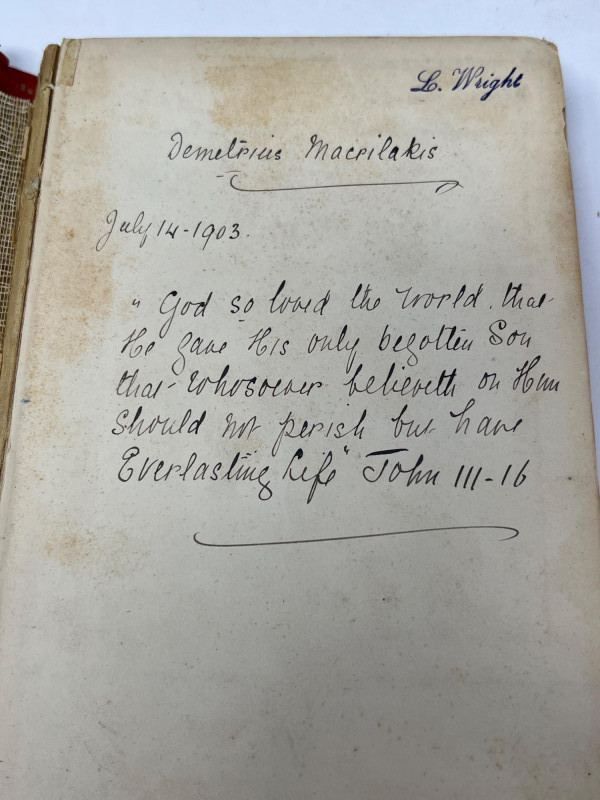 L. Wright
Demetrius Macrilakis
July 14-1903.
" God so loved the World, that
He gave His only begotten Son
that Whosoever believeth on Him
Should not perish but have
Everlasting Life" John III-16